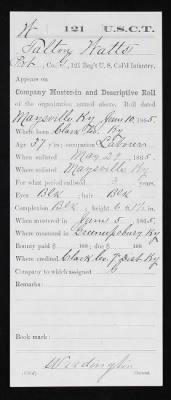 W 121 U.S.C.T.
Falton Watts
Pvt., Co. G, 121 Reg't U.S. Col'd Infantry.
Appears on
Company Muster-in and Descriptive Roll
of the organization named above. Roll dated
Maysville Ky June 10, 1865.
Where born Clark Co. Ky
Age 37 y'rs; occupation Laborer
When enlisted May 29, 1865.
Where enlisted Maysville Ky
For what period enlisted 3 years.
Eyes Blk; hair Blk
Complexion Blk; height ft. in.
When mustered in June 5, 1865.
Where mustered in Ky
Bounty paid $ 100; due $ 100
Where credited Clark Co. 7 Dist Ky
Company to which assigned
Remarks:
Book mark:
Copyist.